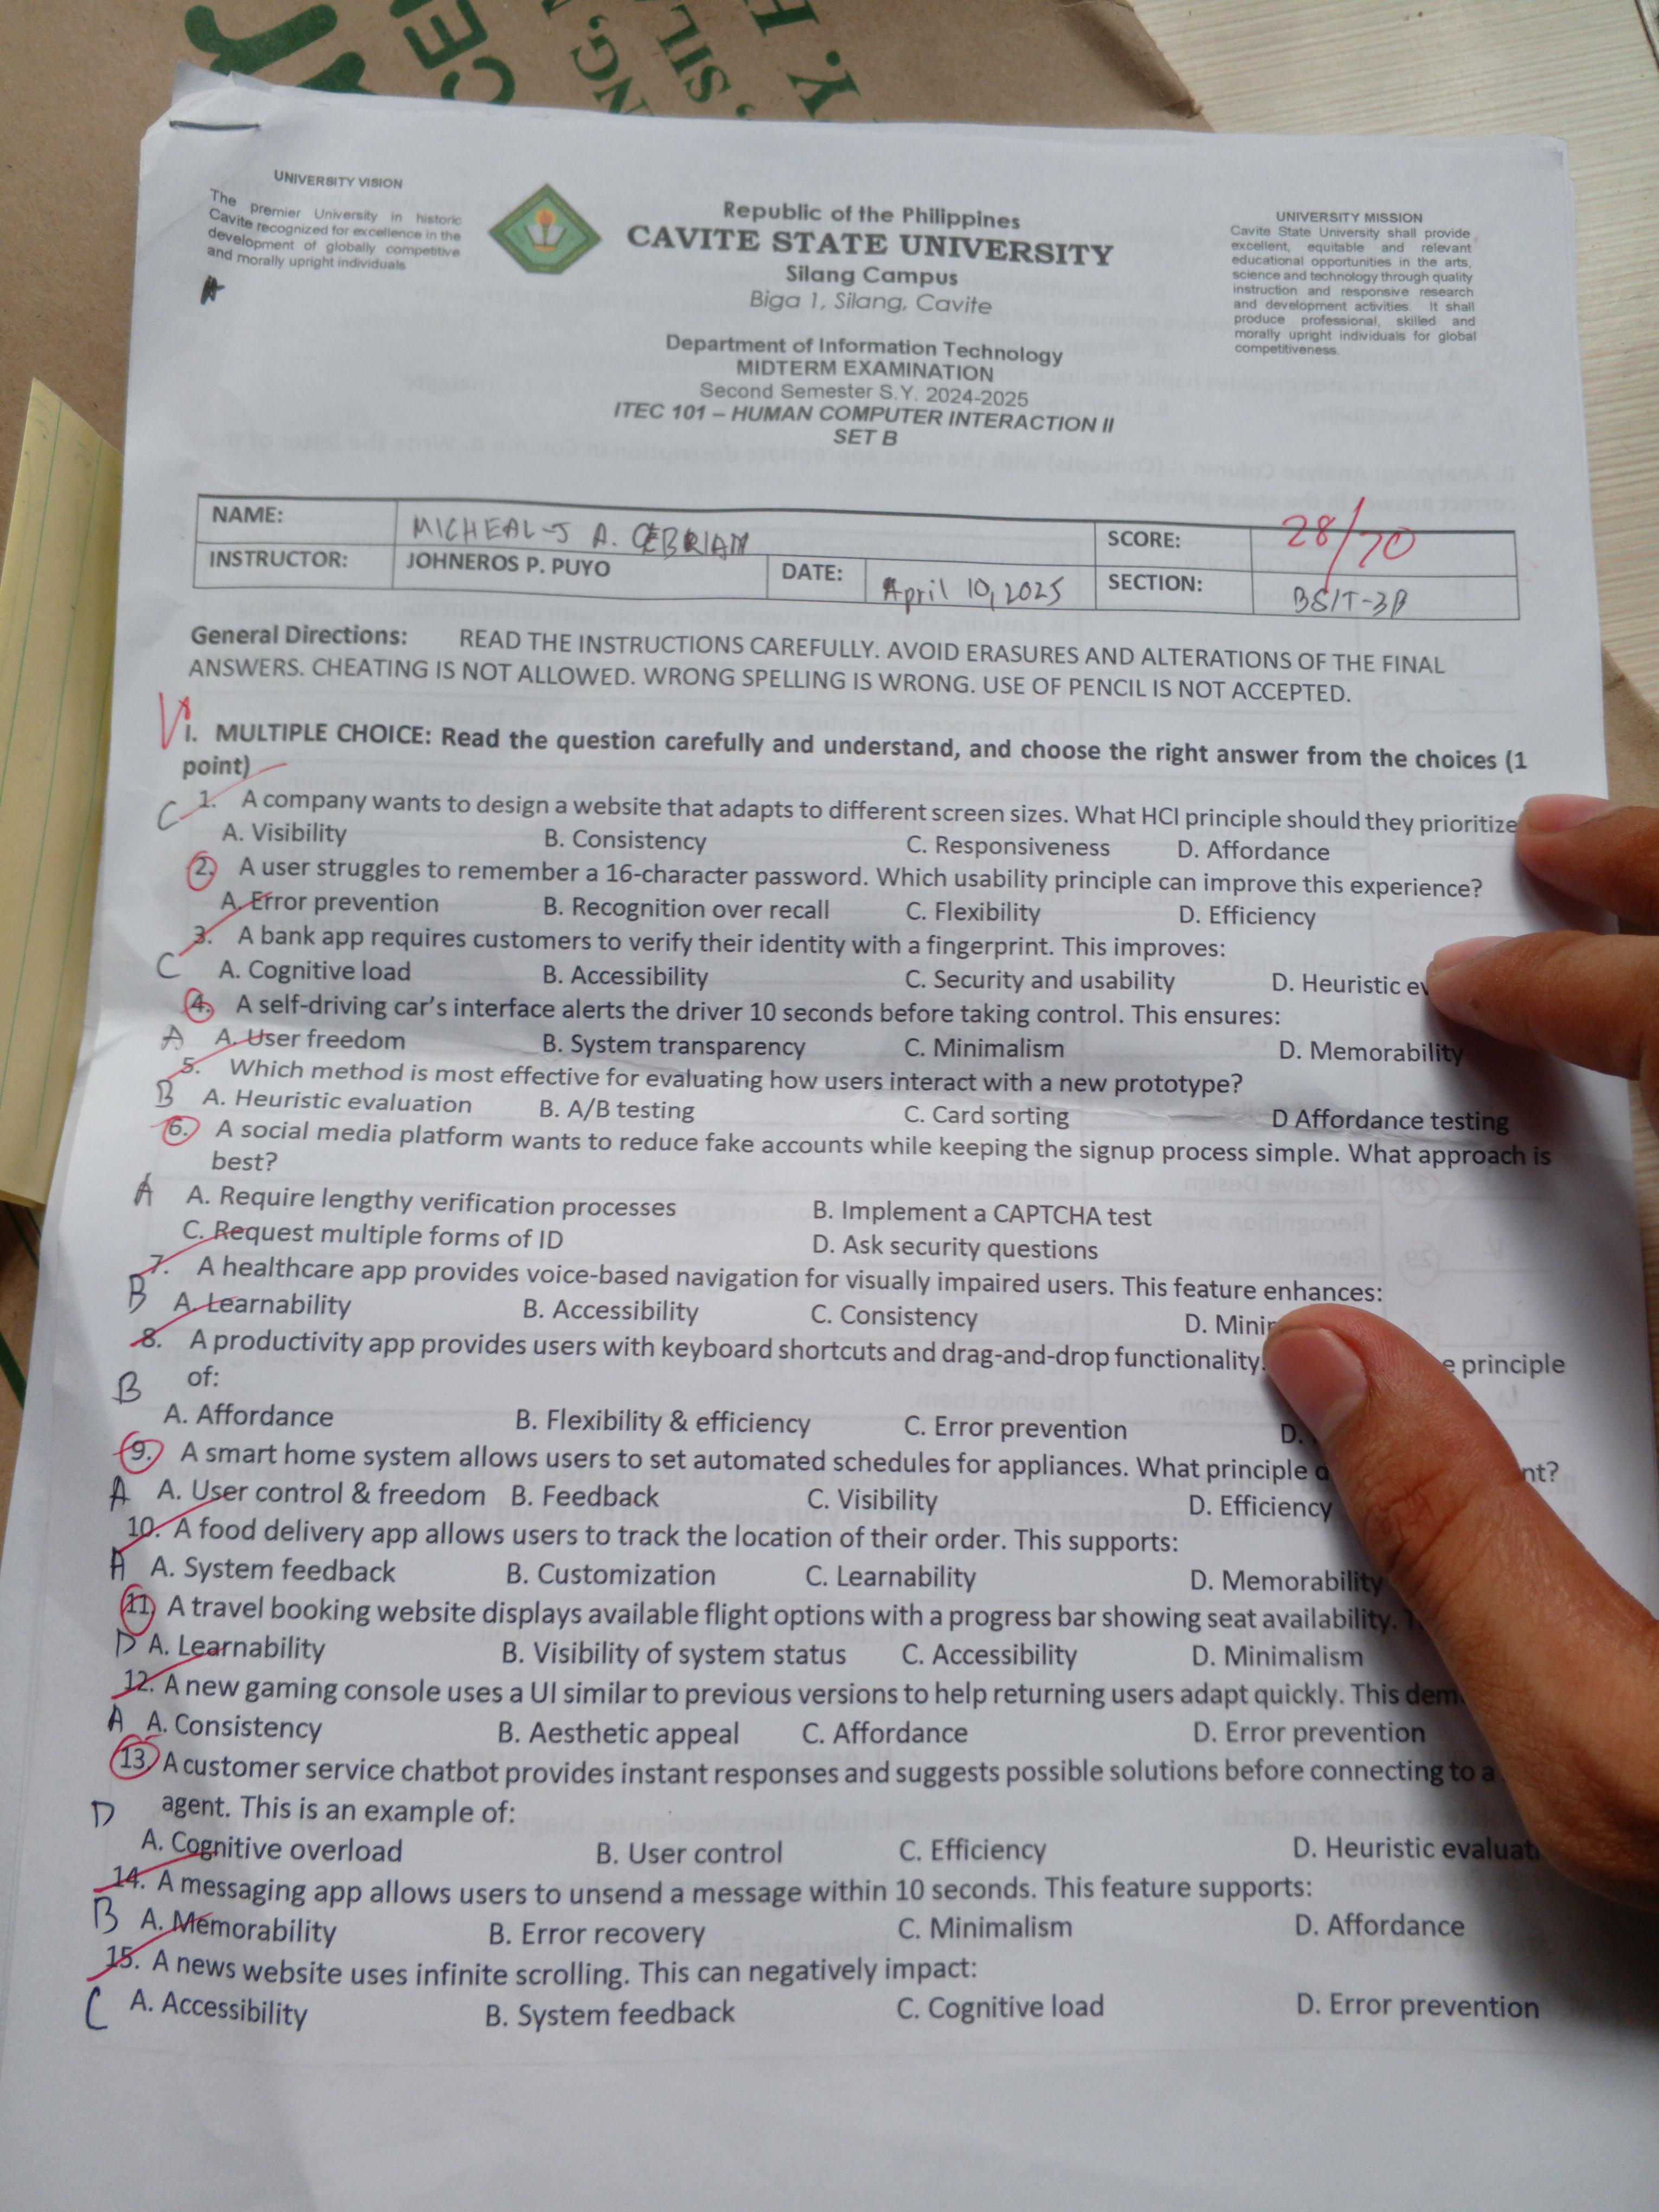 UNIVERSITY VISION
The premier University in historic
Cavite recognized for excellence in the
development of globally competitive
and morally upright individuals
Republic of the Philippines
CAVITE STATE UNIVERSITY
Silang Campus
Biga 1, Silang, Cavite
UNIVERSITY MISSION
Cavite State University shall provide
excellent, equitable and relevant
educational opportunities in the arts,
science and technology through quality
instruction and responsive research
and development activities. It shall
produce professional, skilled and
morally upright individuals for global
competitiveness.
Department of Information Technology
MIDTERM EXAMINATION
Second Semester S.Y. 2024-2025
ITEC 101 – HUMAN COMPUTER INTERACTION II
SET B
NAME: MICHEAL-J A. CEBRIAN SCORE: 28/70
INSTRUCTOR: JOHNEROS P. PUYO DATE: April 10, 2025 SECTION: BSIT-3B
General Directions: READ THE INSTRUCTIONS CAREFULLY. AVOID ERASURES AND ALTERATIONS OF THE FINAL
ANSWERS. CHEATING IS NOT ALLOWED. WRONG SPELLING IS WRONG. USE OF PENCIL IS NOT ACCEPTED.
I. MULTIPLE CHOICE: Read the question carefully and understand, and choose the right answer from the choices (1
point)
C 1. A company wants to design a website that adapts to different screen sizes. What HCI principle should they prioritize
A. Visibility B. Consistency C. Responsiveness D. Affordance
2. A user struggles to remember a 16-character password. Which usability principle can improve this experience?
A. Error prevention B. Recognition over recall C. Flexibility D. Efficiency
3. A bank app requires customers to verify their identity with a fingerprint. This improves:
C A. Cognitive load B. Accessibility C. Security and usability D. Heuristic
4. A self-driving car's interface alerts the driver 10 seconds before taking control. This ensures:
A A. User freedom B. System transparency C. Minimalism D. Memorability
5. Which method is most effective for evaluating how users interact with a new prototype?
B A. Heuristic evaluation B. A/B testing C. Card sorting D Affordance testing
6. A social media platform wants to reduce fake accounts while keeping the signup process simple. What approach is
best?
A A. Require lengthy verification processes B. Implement a CAPTCHA test
C. Request multiple forms of ID D. Ask security questions
7. A healthcare app provides voice-based navigation for visually impaired users. This feature enhances:
B A. Learnability B. Accessibility C. Consistency D.
8. A productivity app provides users with keyboard shortcuts and drag-and-drop functionality. principle
B of:
A. Affordance B. Flexibility & efficiency C. Error prevention D.
9. A smart home system allows users to set automated schedules for appliances. What principle
A A. User control & freedom B. Feedback C. Visibility D. Efficiency
10. A food delivery app allows users to track the location of their order. This supports:
A A. System feedback B. Customization C. Learnability D. Memorability
11. A travel booking website displays available flight options with a progress bar showing seat availability.
D A. Learnability B. Visibility of system status C. Accessibility D. Minimalism
12. A new gaming console uses a UI similar to previous versions to help returning users adapt quickly. This
A A. Consistency B. Aesthetic appeal C. Affordance D. Error prevention
13. A customer service chatbot provides instant responses and suggests possible solutions before connecting to a
D agent. This is an example of:
A. Cognitive overload B. User control C. Efficiency D. Heuristic
14. A messaging app allows users to unsend a message within 10 seconds. This feature supports:
B A. Memorability B. Error recovery C. Minimalism D. Affordance
15. A news website uses infinite scrolling. This can negatively impact:
C A. Accessibility B. System feedback C. Cognitive load D. Error prevention